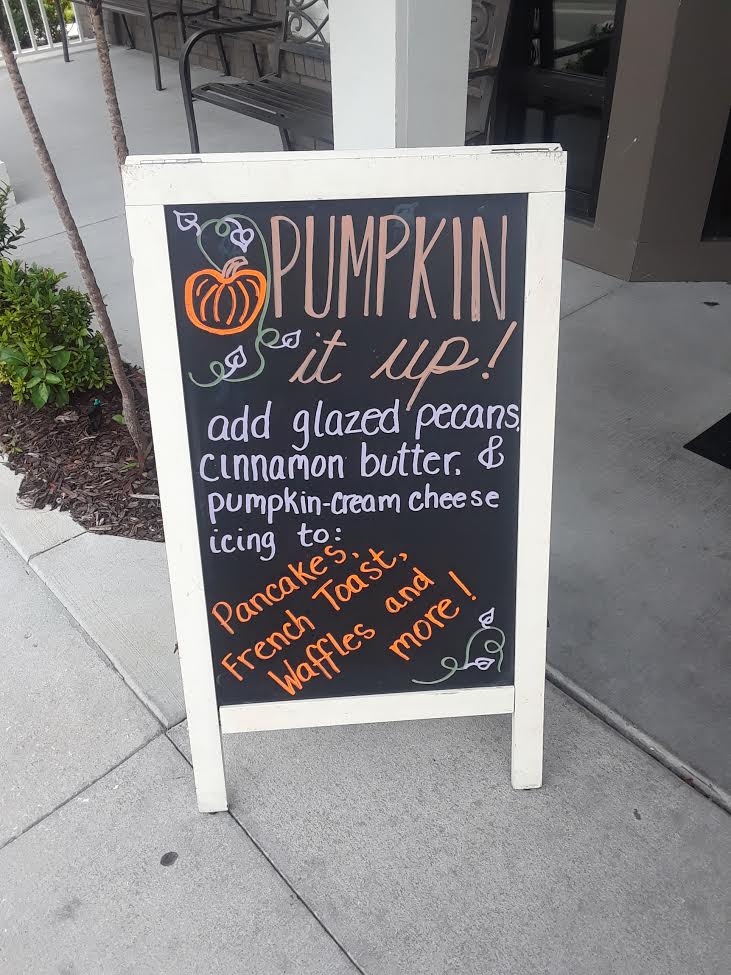 PUMPKIN
it up!
add glazed pecans,
cinnamon butter, &
pumpkin-cream cheese
icing to:
Pancakes,
French Toast,
Waffles and
more!